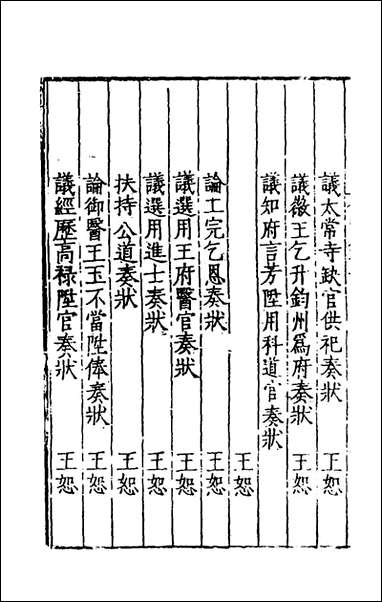 議太常寺缺官供祀奏狀 王恕
議徽王乞升鈞州爲府奏狀 王恕
議知府言芳陞用科道官奏狀
王恕
論工完乞恩奏狀 王恕
議選用王府醫官奏狀 王恕
議選用進士奏狀 王恕
扶持公道奏狀 王恕
論御醫王玉不當陞俸奏狀 王恕
議經歷高祿陞官奏狀 王恕